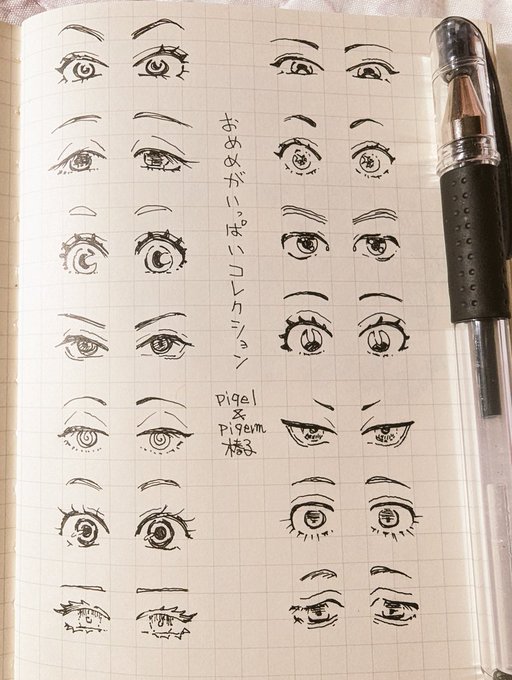 おめめがいっぱいコレクション
pigel
&
pigerm
椿子